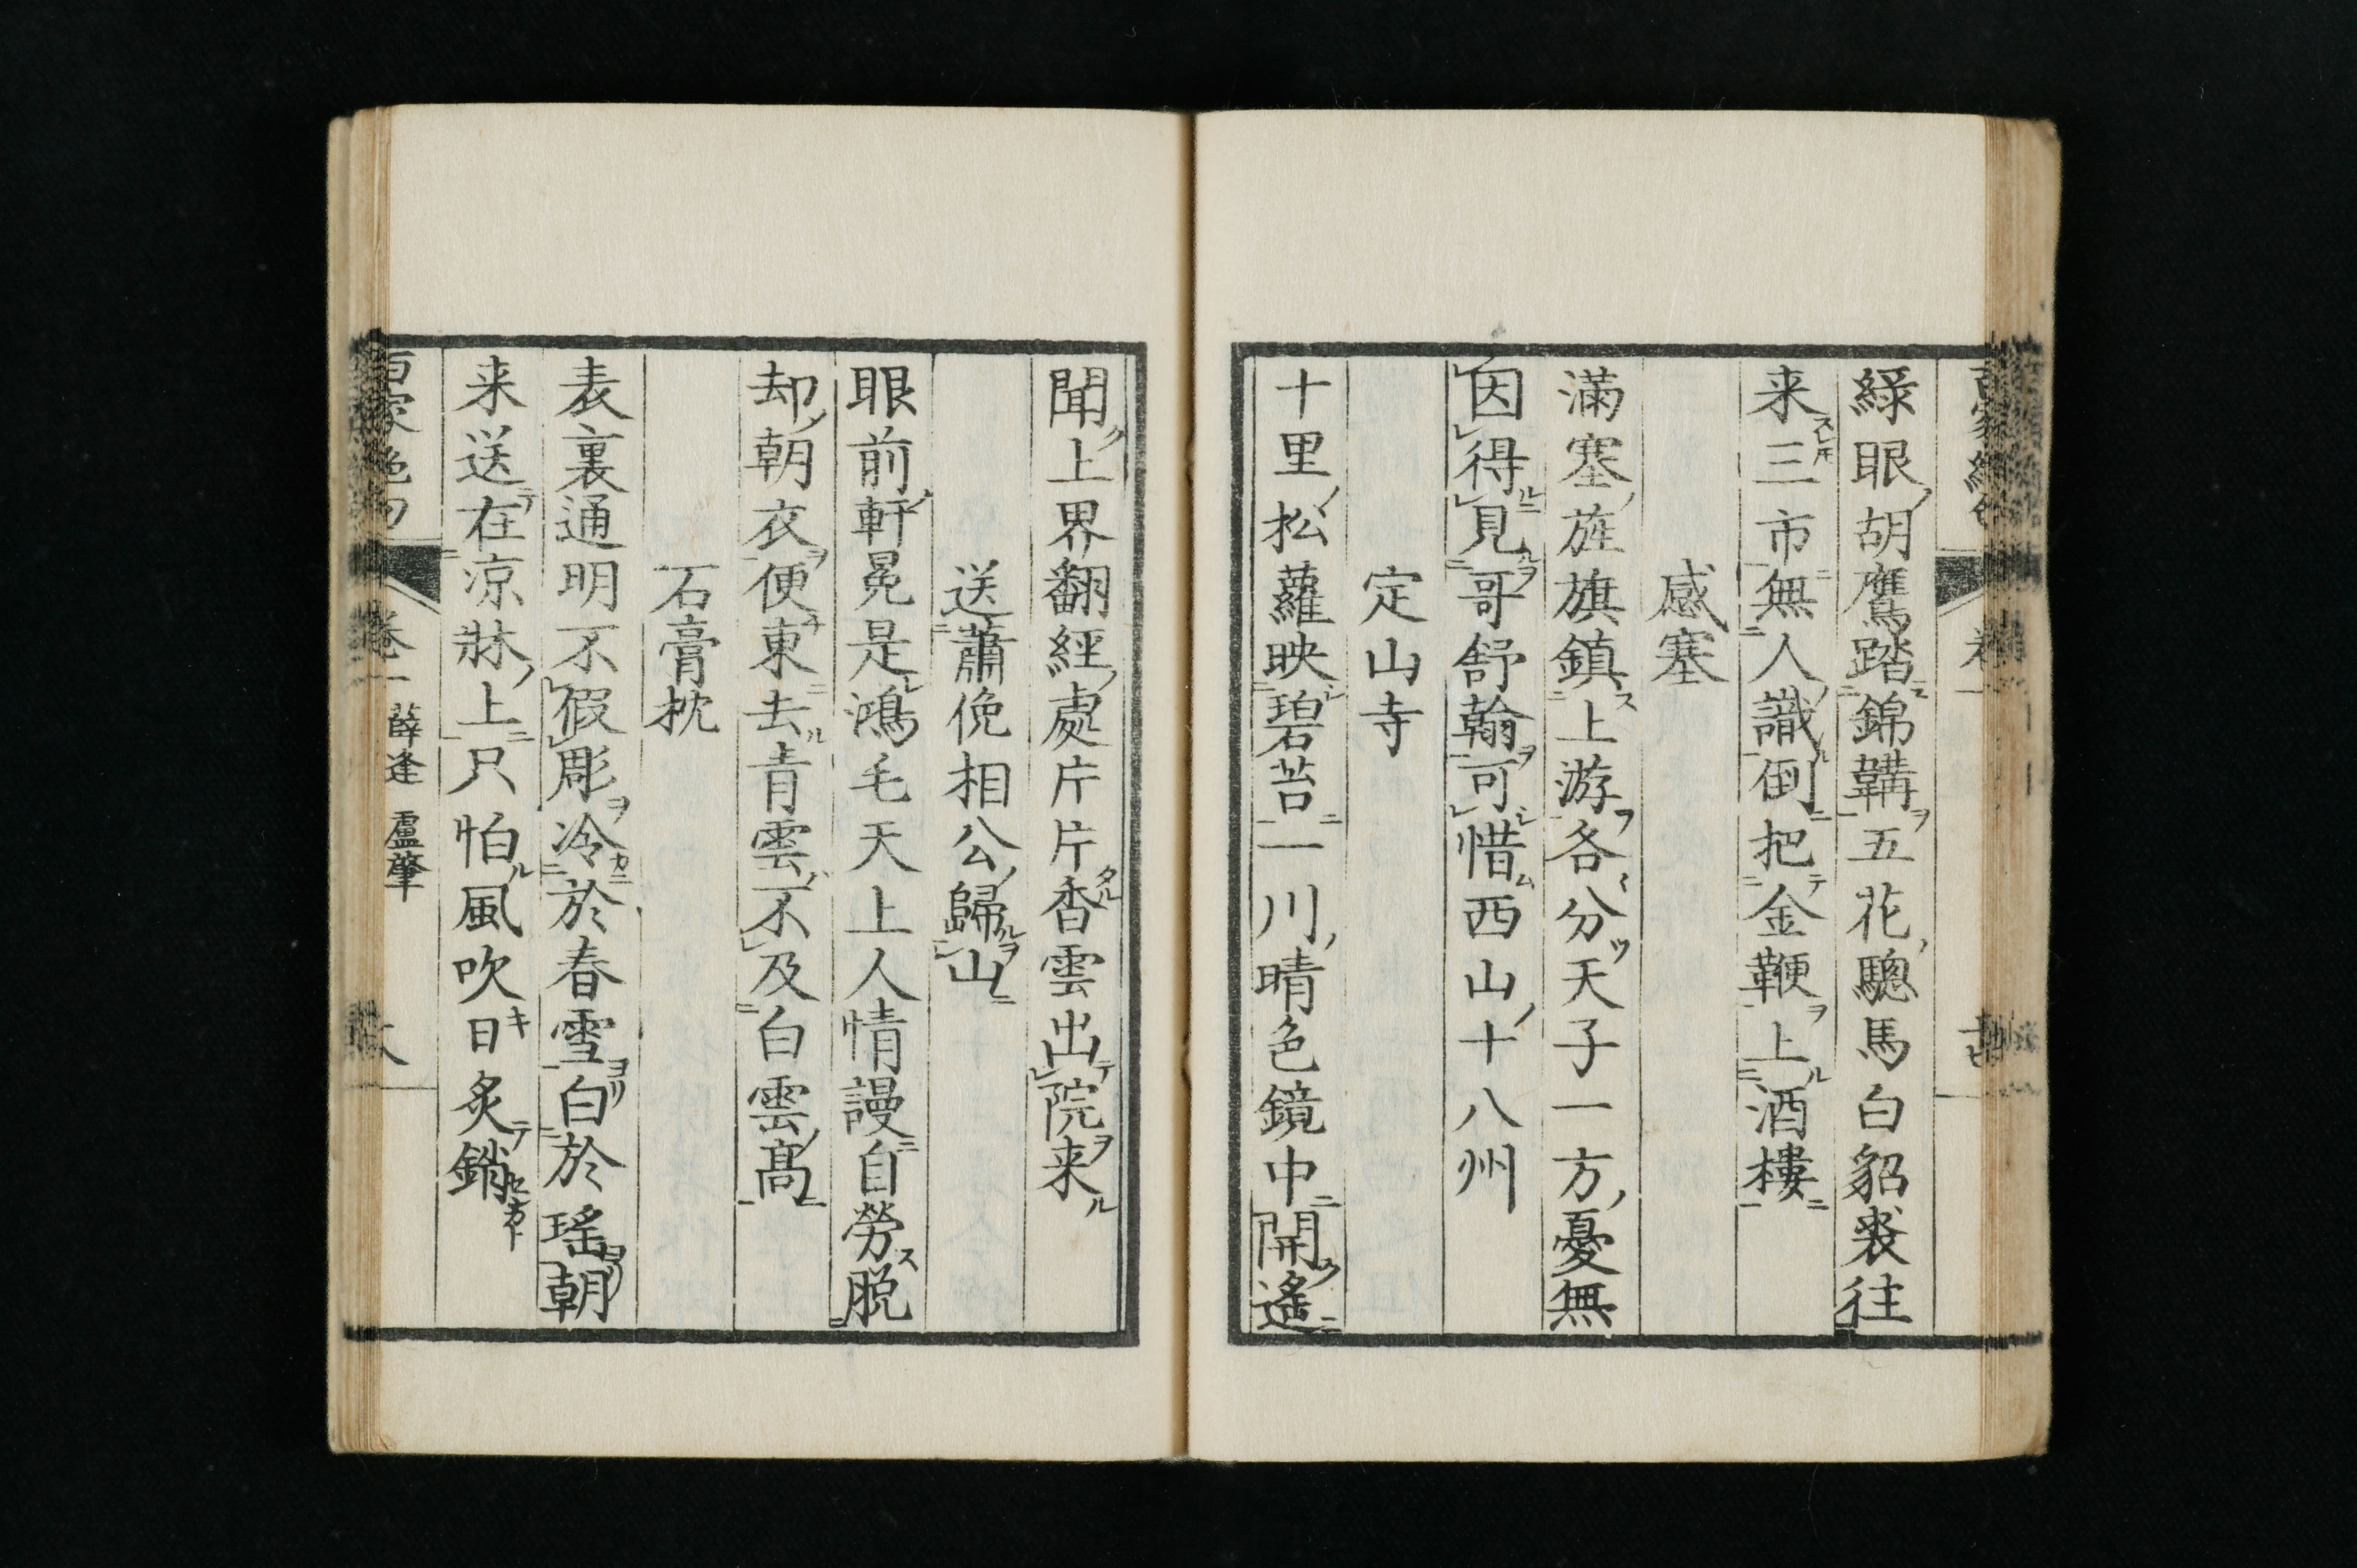 綠眼胡鷹踏錦韝五花驄馬白貂裘往
来三市無人識倒把金鞭上酒樓
感塞
滿塞旌旗鎮上游各分天子一方憂無
因得見哥舒翰可惜西山十八州
定山寺
十里松蘿映碧苔一川晴色鏡中開遙
聞上界翻經處片片香雲出院来
送蕭俛相公歸山
眼前軒冕是鴻毛天上人情謾自勞脱
却朝衣便東去青雲不及白雲高
石膏枕
表裏通明不假彫冷於春雪白於瑤朝
来送在凉牀上只怕風吹日炙銷
百家絶句 卷一 薛逢 盧肇